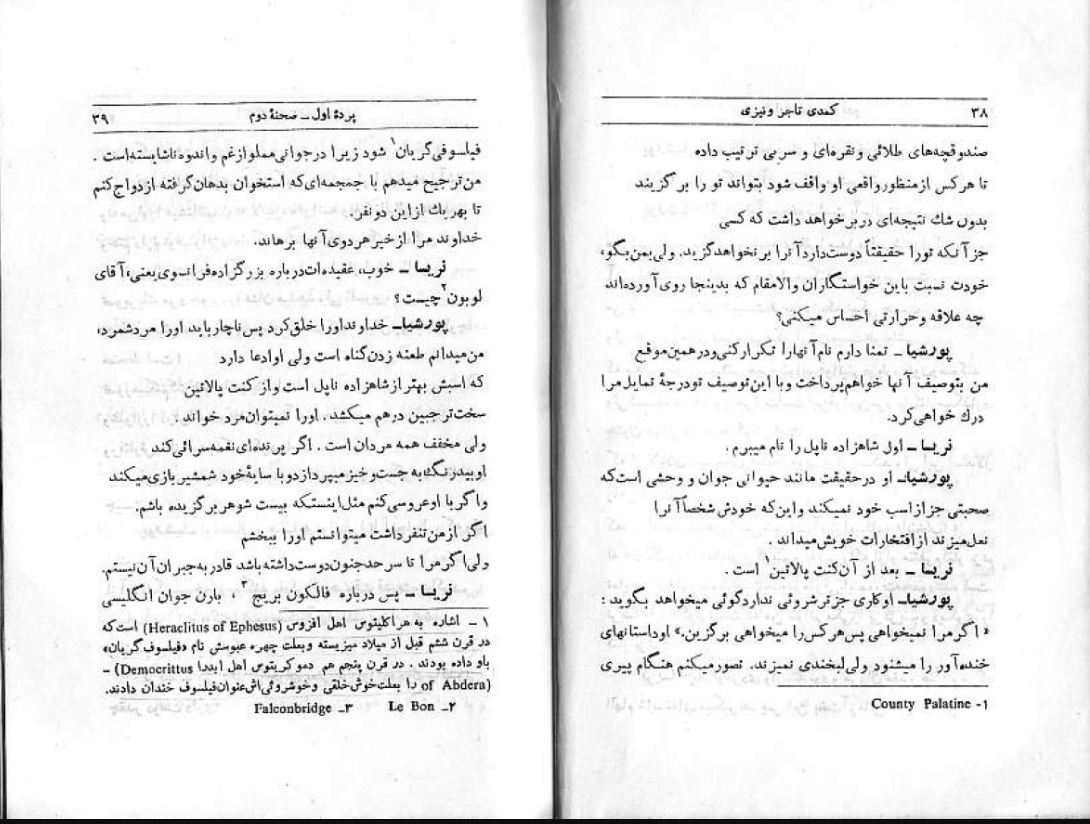 ۳۸ کمدی تاجر ونیزی
صندوقچه‌های طلائی ونقره‌ای و سربی ترتیب داده
تا هرکس ازمنظور واقعی او واقف شود بتواند تو را برگزیند
بدون شك نتیجه‌ای دربرخواهد داشت که کسی
جز آنکه تورا حقیقتاً دوست‌دارد آنرا برنخواهدگزید. ولی بمن‌بگو،
خودت نسبت باین خواستگاران والامقام که بدینجا روی آورده‌اند
چه علاقه وحرارتی احساس میکنی؟
پورشیا ـ تمنا دارم نام آنهارا تکرارکنی ودرهمین‌موقع
من بتوصیف آنها خواهم‌پرداخت و با این‌توصیف تودرجهٔ تمایل‌مرا
درك خواهی‌کرد.
نریسا ـ اول شاهزاده ناپل را نام میبرم .
پورشیاـ او درحقیقت مانند حیوانی جوان و وحشی است‌که
صحبتی جز ازاسب خود نمیکند واین‌که خودش شخصاً آنرا
نعل‌میزند ازافتخارات خویش‌میداند .
نریسا ـ بعد از آن‌کنت پالاتین۱ است .
پورشیاـ اوکاری جز ترشروئی نداردگوئی میخواهد بگوید :
« اگرمرا نمیخواهی پس‌هرکس‌را میخواهی برگزین.» اوداستانهای
خنده‌آور را میشنود ولی‌لبخندی نمیزند. تصورمیکنم هنگام پیری
۱- County Palatine
پردهٔ اول ـ صحنهٔ دوم ۳۹
فیلسوفی‌گریان۱ شود زیرا درجوانی‌مملو ازغم واندوه ناشایسته‌است .
من‌ترجیح میدهم با جمجمه‌ای‌که استخوان بدهان‌گرفته ازدواج‌کنم
تا بهریك ازاین دونفر.
خداوند مرا ازخیر هردوی آنها برهاند.
نریسا ـ خوب، عقیده‌ات درباره بزرگزاده فرانسوی‌یعنی، آقای
لوبون۲ چیست؟
پورشیاـ خداوند اورا خلق‌کرد پس ناچار باید اورا مرد شمرد،
من‌میدانم طعنه زدن‌گناه است ولی اوادعا دارد
که اسبش بهتر ازشاهزاده ناپل است واز کنت پالاتین
سخت‌تر جبین درهم میکشد . اورا نمیتوان‌مرد خواند .
ولی مخفف همه مردان است . اگر پرنده‌ای نغمه‌سرائی‌کند
اوبیدرنگ به جست‌وخیز میپردازد و با سایهٔ خود شمشیر بازی‌میکند
واگر با اوعروسی‌کنم مثل‌اینستکه بیست شوهر برگزیده باشم.
اگر ازمن‌تنفر داشت میتوانستم اورا ببخشم
ولی‌اگرمرا تا سرحد جنون‌دوست‌داشته‌باشد قادر به‌جبران آن‌نیستم.
نریسا ـ پس درباره فالکون بریج ۳ ، بارن جوان انگلیسی
۱ ـ اشاره به هراکلیتوس اهل افزوس (Heraclitus of Ephesus) است‌که
در قرن ششم قبل از میلاد میزیسته وبعلت چهره عبوسش نام «فیلسوف‌گریان»
باو داده بودند . در قرن پنجم هم دموکریتوس اهل ابدرا (Democrittus ـ
of Abdera) را بعلت‌خوش‌خلقی وخوشروئی‌اش‌عنوان‌فیلسوف خندان دادند.
۲ـ Le Bon ۳ـ Falconbridge